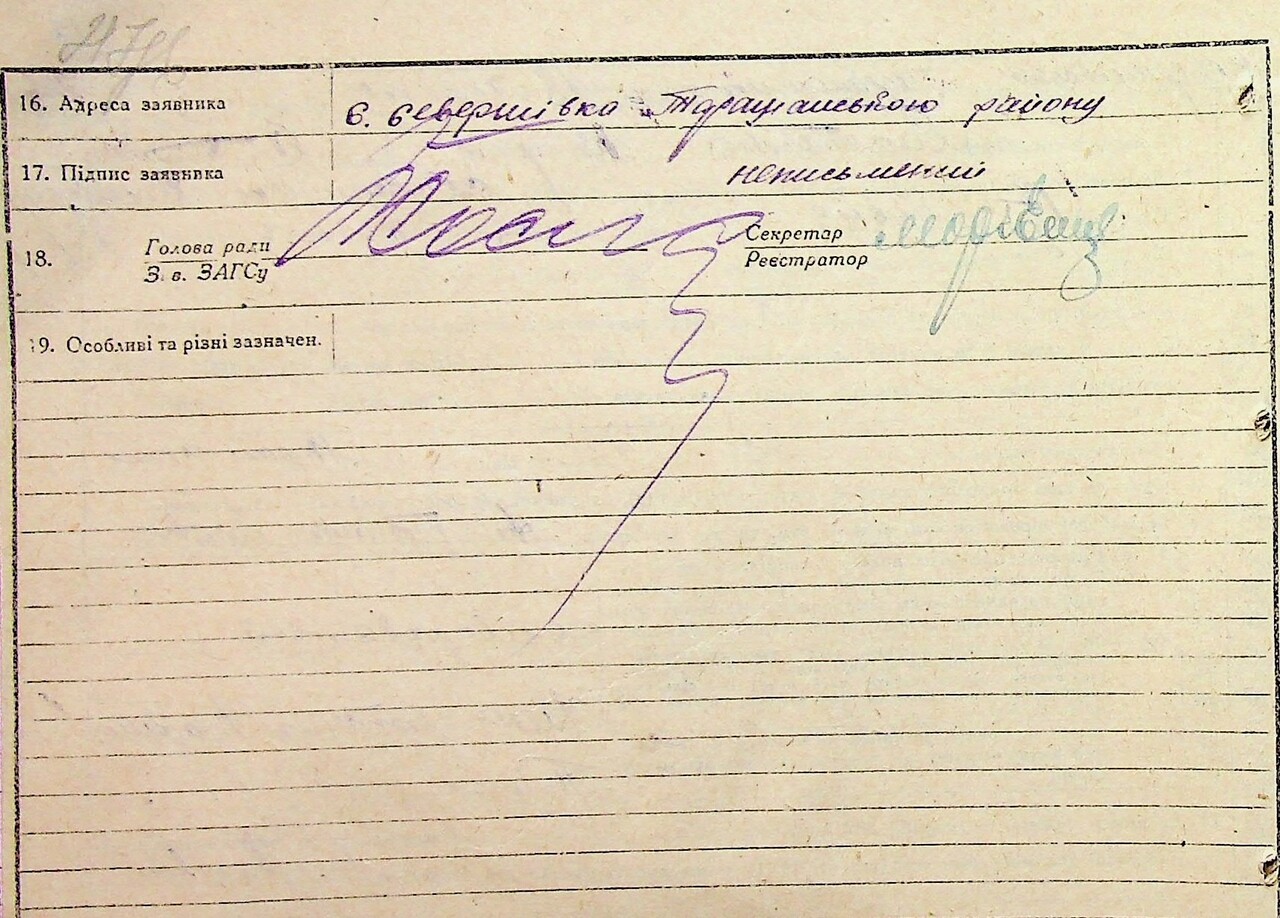 16. Адреса заявника с. Северинівка Таращанського району
17. Підпис заявника неписьменний
18. Голова ради Секретар
З. в. ЗАГСу Реєстратор
19. Особливі та різні зазначен.